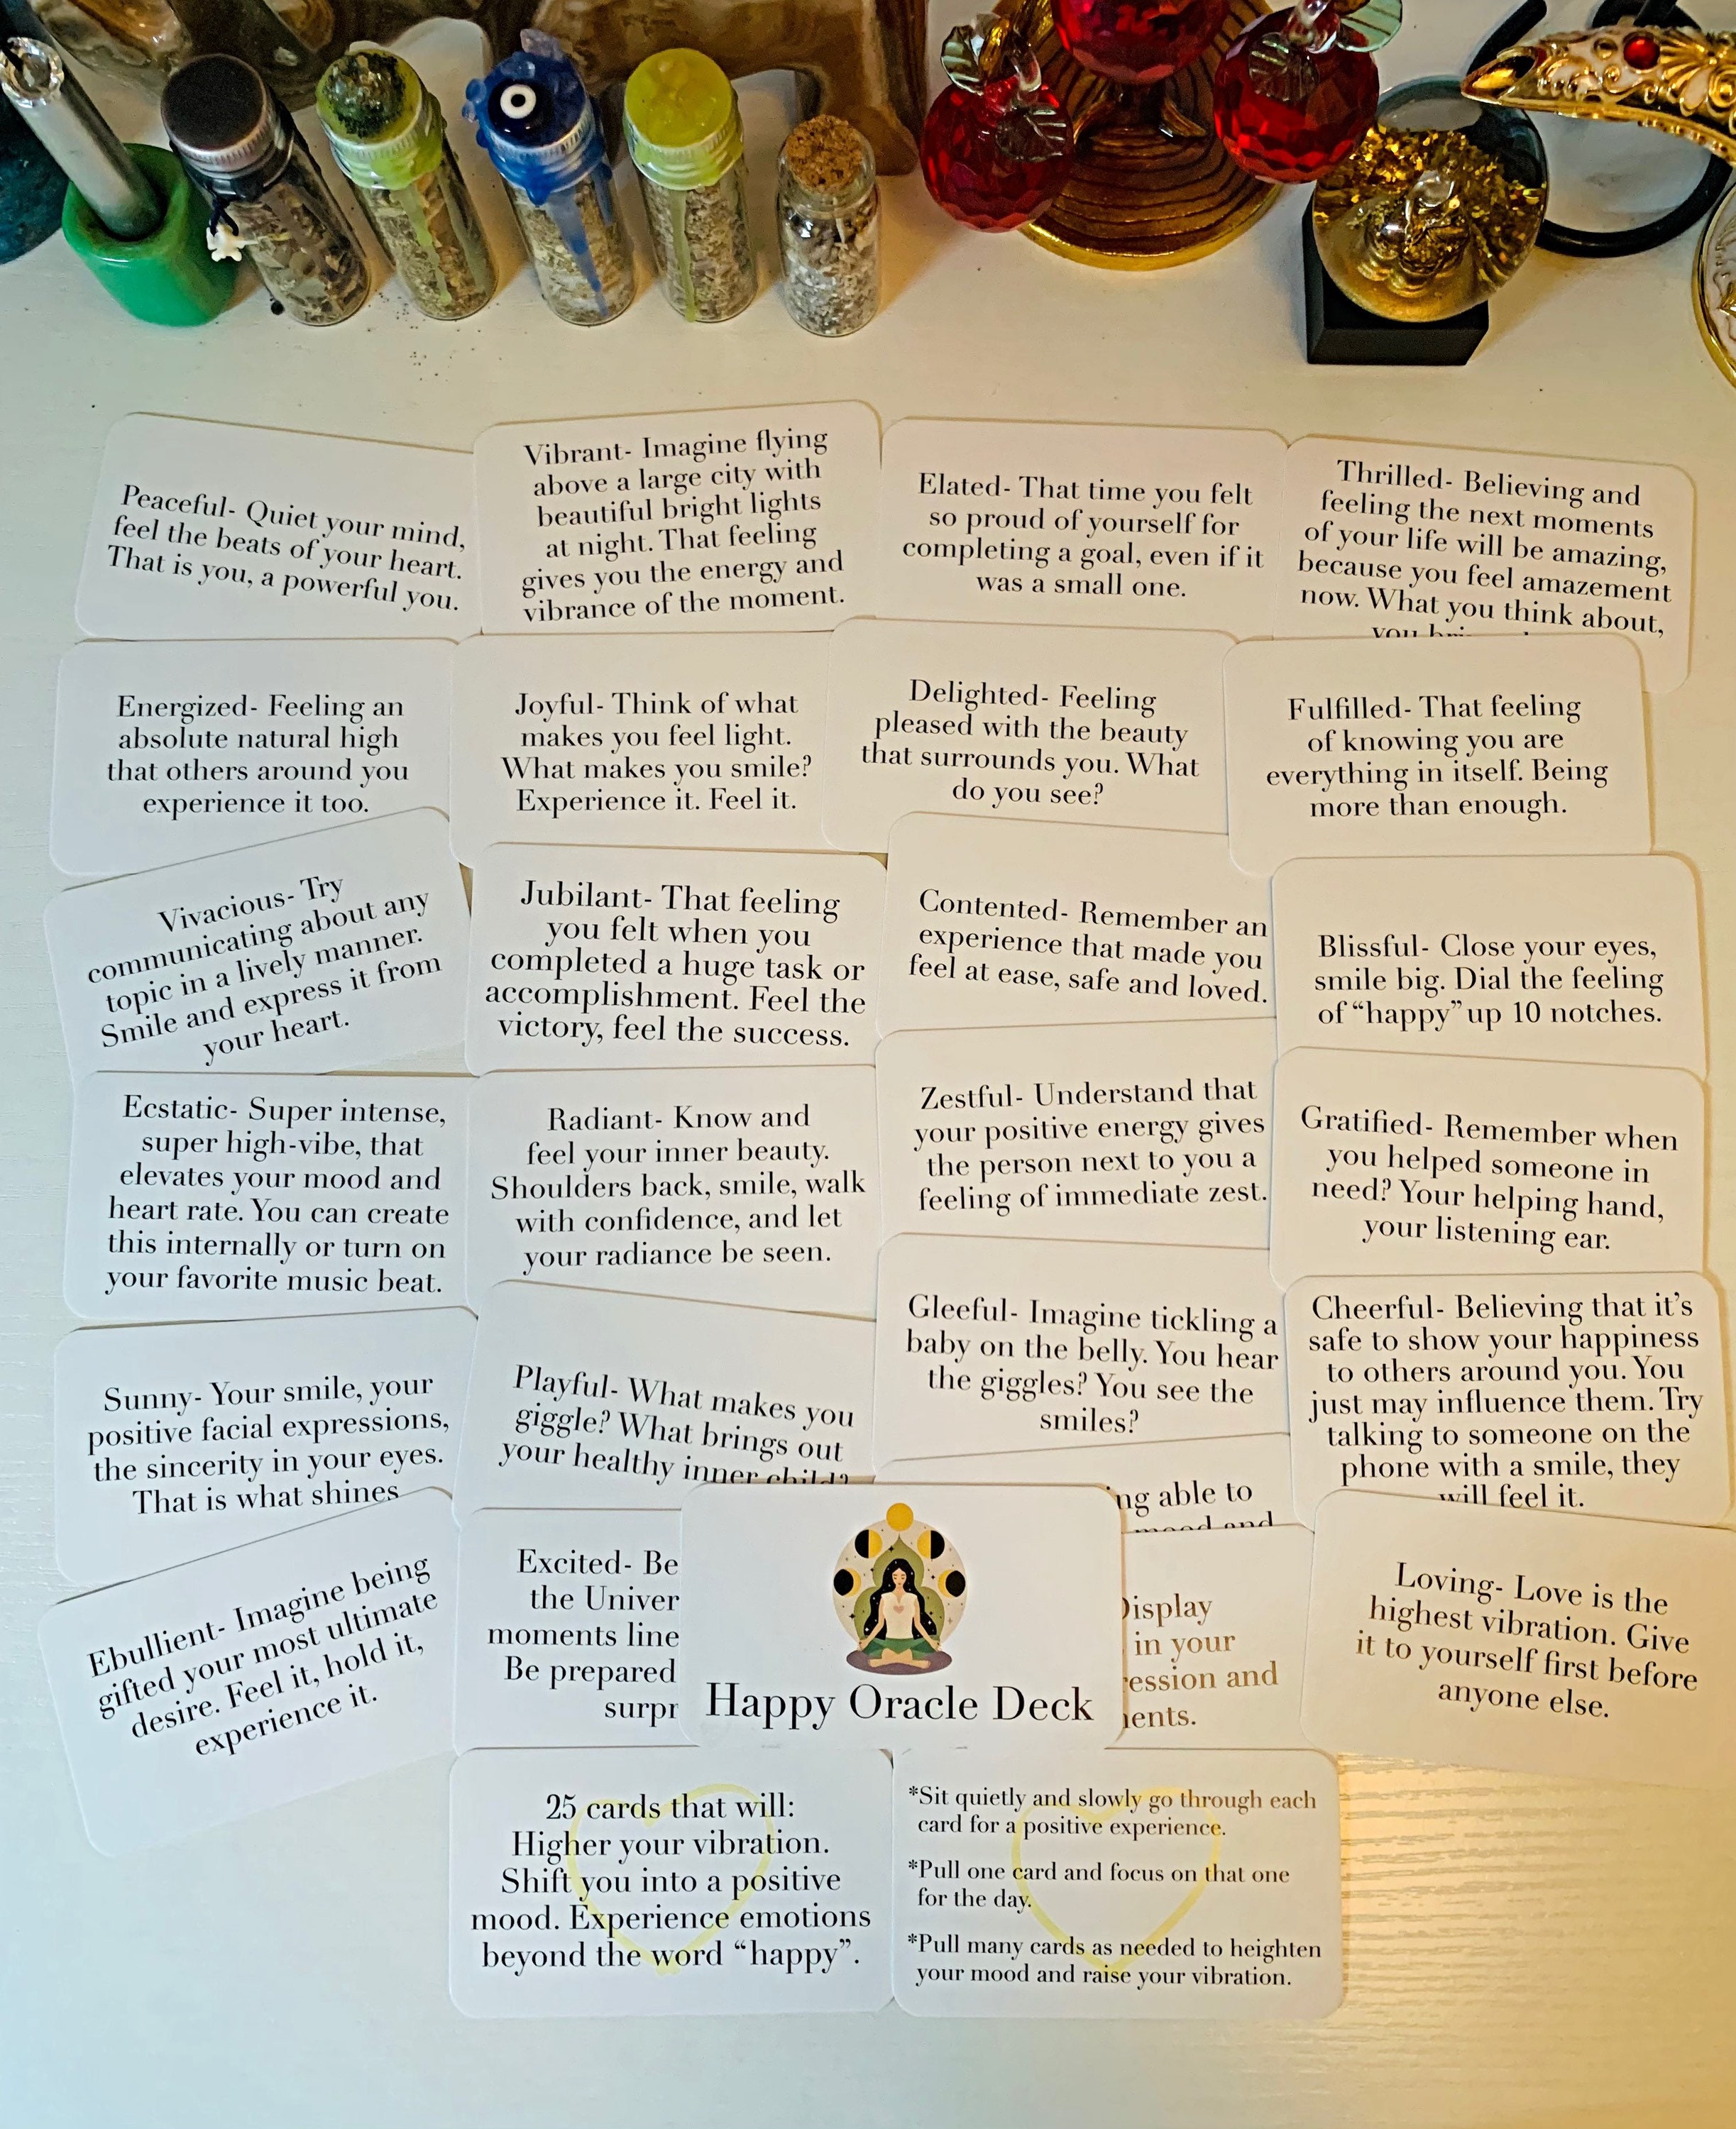 Peaceful- Quiet your mind,
feel the beats of your heart.
That is you, a powerful you.
Vibrant- Imagine flying
above a large city with
beautiful bright lights
at night. That feeling
gives you the energy and
vibrance of the moment.
Elated- That time you felt
so proud of yourself for
completing a goal, even if it
was a small one.
Thrilled- Believing and
feeling the next moments
of your life will be amazing,
because you feel amazement
now. What you think about,
you
Energized- Feeling an
absolute natural high
that others around you
experience it too.
Joyful- Think of what
makes you feel light.
What makes you smile?
Experience it. Feel it.
Delighted- Feeling
pleased with the beauty
that surrounds you. What
do you see?
Fulfilled- That feeling
of knowing you are
everything in itself. Being
more than enough.
Vivacious- Try
communicating about any
topic in a lively manner.
Smile and express it from
your heart.
Jubilant- That feeling
you felt when you
completed a huge task or
accomplishment. Feel the
victory, feel the success.
Contented- Remember an
experience that made you
feel at ease, safe and loved.
Blissful- Close your eyes,
smile big. Dial the feeling
of “happy” up 10 notches.
Ecstatic- Super intense,
super high-vibe, that
elevates your mood and
heart rate. You can create
this internally or turn on
your favorite music beat.
Radiant- Know and
feel your inner beauty.
Shoulders back, smile, walk
with confidence, and let
your radiance be seen.
Zestful- Understand that
your positive energy gives
the person next to you a
feeling of immediate zest.
Gratified- Remember when
you helped someone in
need? Your helping hand,
your listening ear.
Sunny- Your smile, your
positive facial expressions,
the sincerity in your eyes.
That is what shines
Playful- What makes you
giggle? What brings out
your healthy inner child?
Gleeful- Imagine tickling a
baby on the belly. You hear
the giggles? You see the
smiles?
Cheerful- Believing that it’s
safe to show your happiness
to others around you. You
just may influence them. Try
talking to someone on the
phone with a smile, they
will feel it.
ng able to
mood and
Ebullient- Imagine being
gifted your most ultimate
desire. Feel it, hold it,
experience it.
Excited- Be
the Univer
moments line
Be prepared
surpr
Happy Oracle Deck
Display
in your
ession and
ents.
Loving- Love is the
highest vibration. Give
it to yourself first before
anyone else.
25 cards that will:
Higher your vibration.
Shift you into a positive
mood. Experience emotions
beyond the word “happy”.
*Sit quietly and slowly go through each
card for a positive experience.
*Pull one card and focus on that one
for the day.
*Pull many cards as needed to heighten
your mood and raise your vibration.